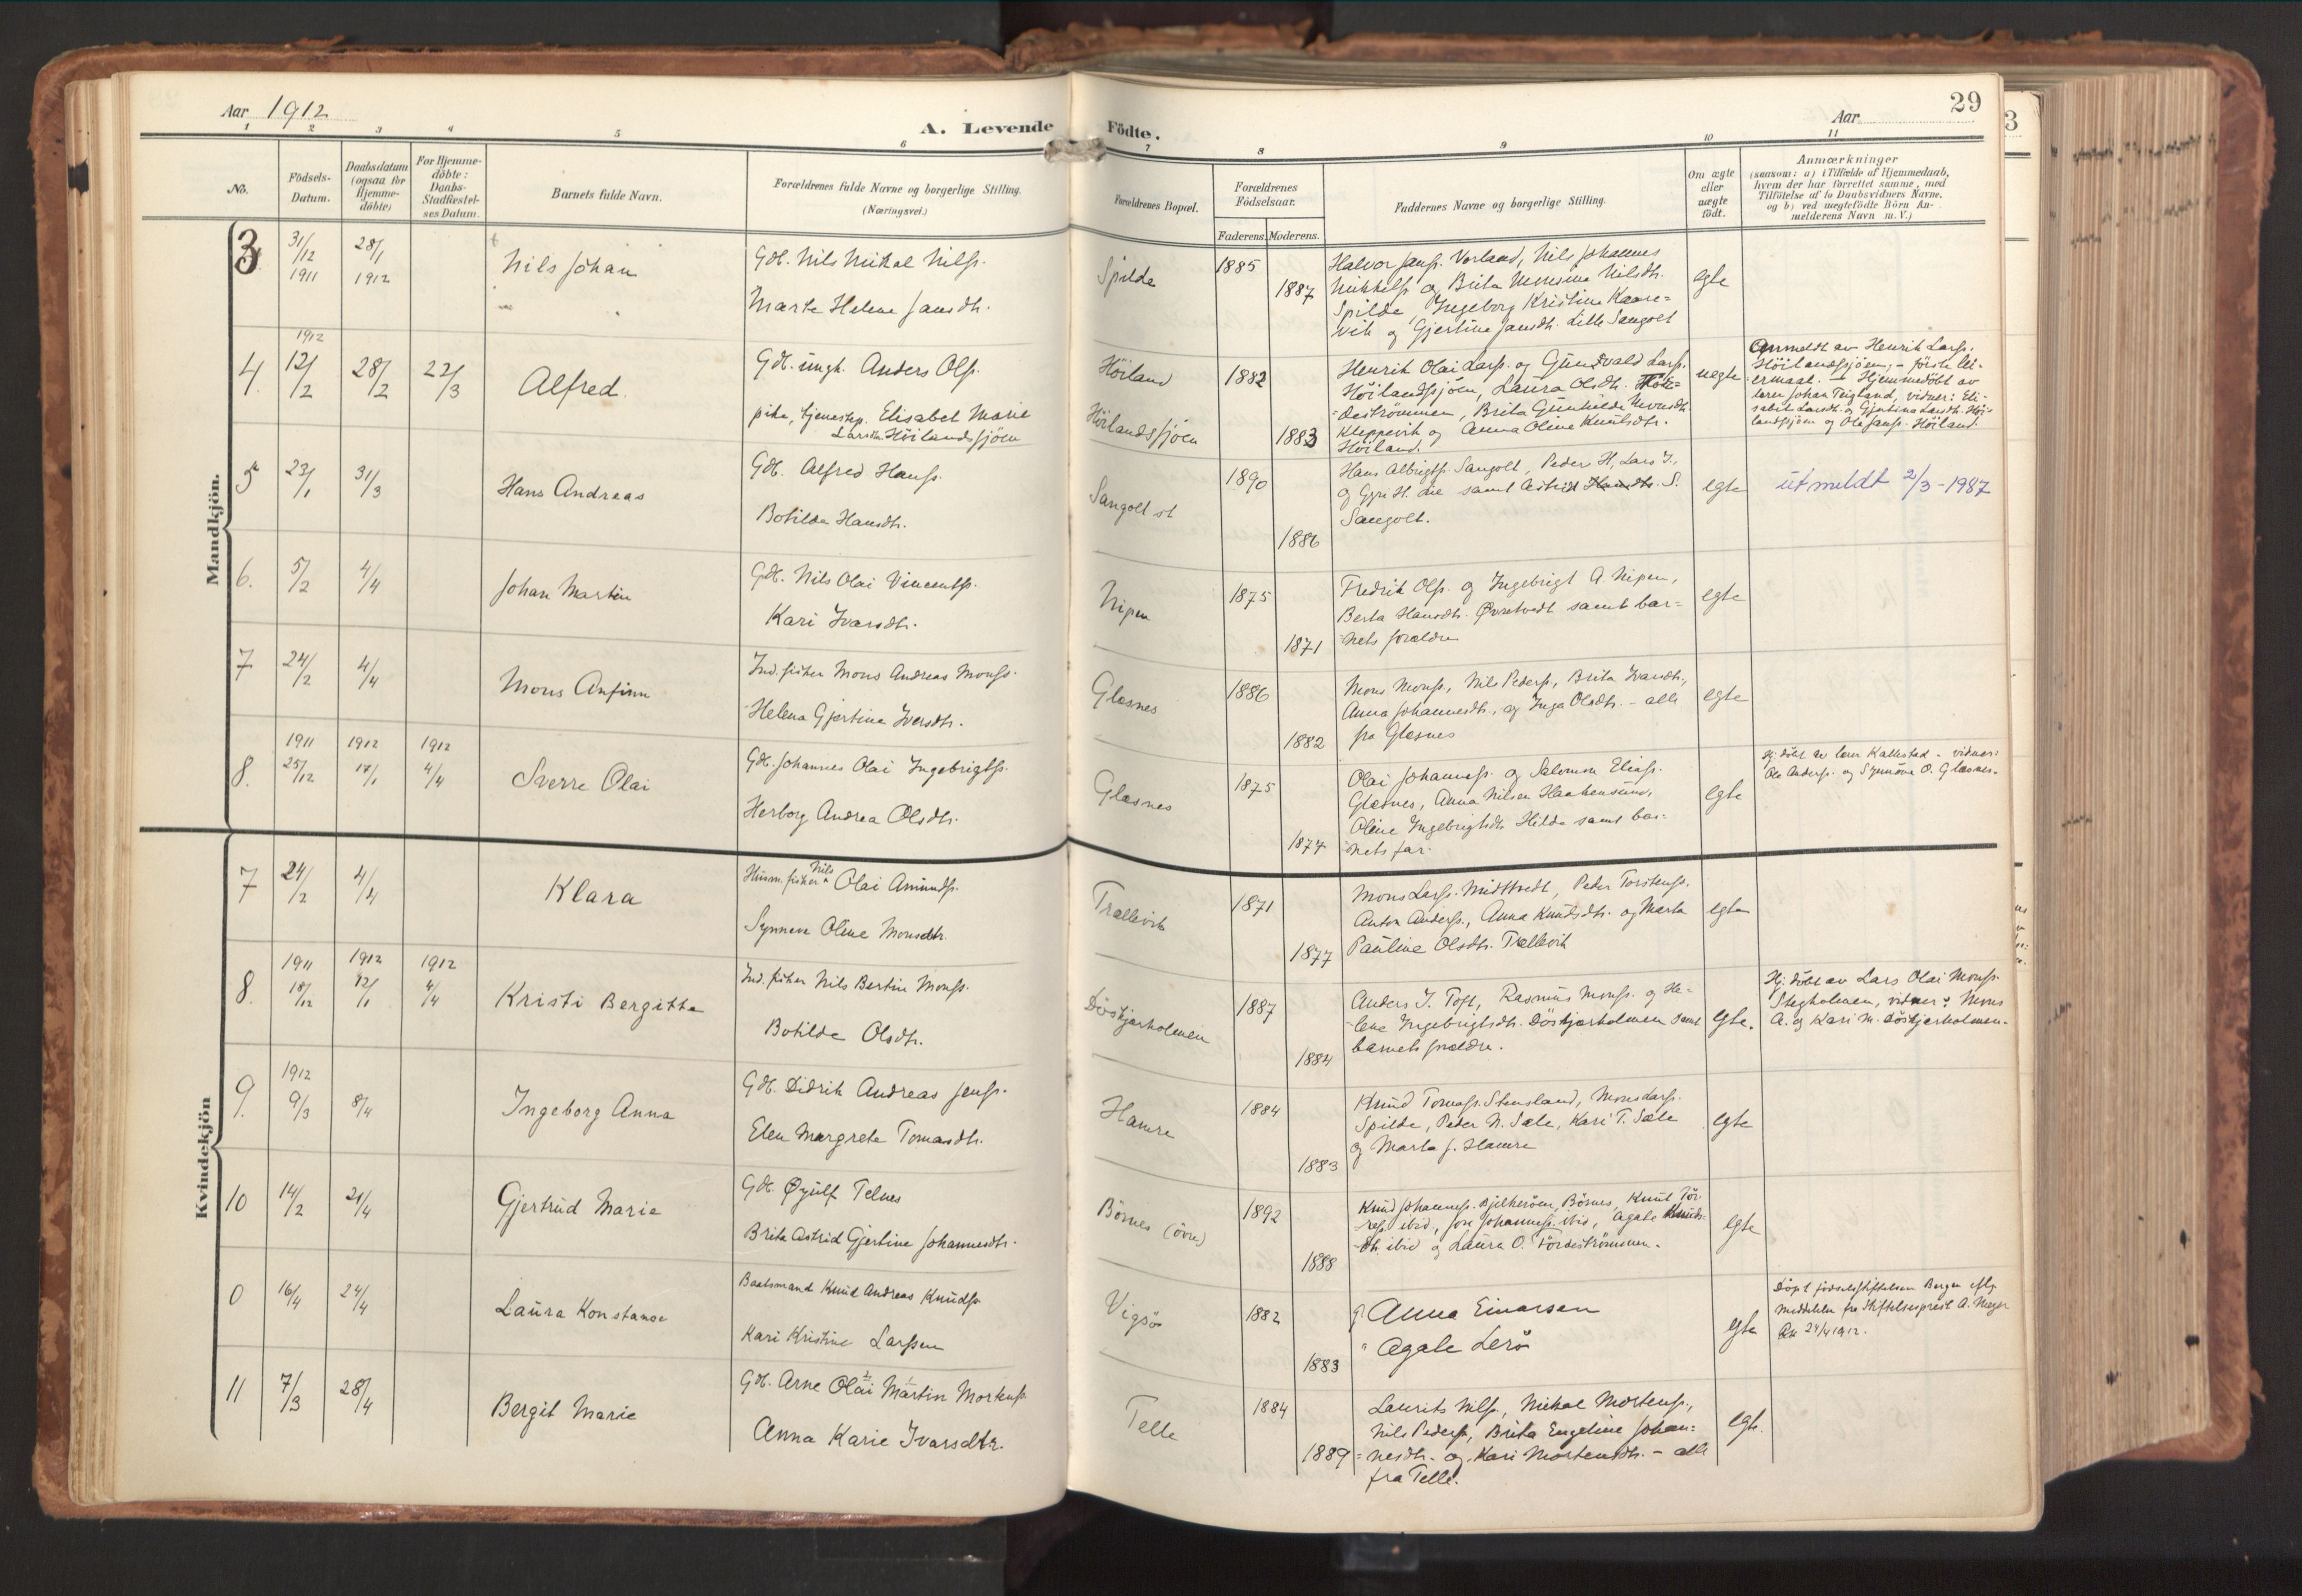 Aar 1912
A. Levende
Födte.
Aar
29
1 2 3 4 5 6 7 8 9 10 11
No.
Födsels-
Datum.
Daabsdatum
(ogsaa for
Hjemme-
döbte)
For Hjemme-
döbte:
Daabs-
Stadfæstel-
ses Datum.
Barnets fulde Navn.
Forældrenes fulde Navne og borgerlige Stilling.
(Næringsvei.)
Forældrenes Bopæl.
Forældrenes
Födselsaar.
Faderens. Moderens.
Faddernes Navne og borgerlige Stilling.
Om ægte
eller
uægte
födt.
Anmærkninger
(saasom: a) i Tilfælde af Hjemmedaab,
hvem der har forrettet samme, med
Tilföielse af to Daabsvidners Navne.
og b) ved uægtefödte Börn An-
melderens Navn m. V.)
Mandkjön.
3
31/12
1911
28/1
1912
Nils Johan
Gdb. Nils Mikal Nilss.
Marta Helene Jansdtr.
Spilde
1885
1887
Halvor Janss. Vorland, Nils Johannes
Mikkels. og Brita Monsine Nilsdtr.
Spilde, Ingeborg Kristine Kaare=
vik og Gjertine Jansdtr. Litle Sangolt
egte
1912
4.
12/2
28/2
22/3
Alfred.
Gdb. ungk. Anders Ols.
pike, tjenestep. Elisabet Marie
Larsdtr. Höilandssjöen
Höiland
Höilandssjöen
1882
1883
Henrik Olai Larss. og Gunvald Larss.
Höilandssjöen, Laura Olsdtr.
=deströmmen, Brita Gunhilde Monsdtr.
Kleppevik og Anna Oline Knutsdtr.
Höiland.
uegte
Anmeldt av Henrik Larss.
Höilandssjöen, - förste lei-
ermaal. - Hjemmedöbt av
lærer Johan Teigland, vidner: Eli-
sabet Larsdtr. og Gjertina Larsdtr. Höi-
landssjöen og Ole Janss. Höiland.
5
23/1
31/3
Hans Andreas
Gdb. Alfred Hanss.
Botilda Hansdtr.
Sangolt st
1890
1886
Hans Albrigts. Sangolt, Peder H, Lars J.,
og Gyri H. die samt Astrid Hansdtr. S.
Sangolt.
egte
utmeldt 2/3-1987
6.
5/2
4/4
Johan Martin
Gdb. Nils Olai Vincents.
Kari Ivarsdtr.
Nipen
1875
1871
Fredrik Ols. og Ingebrigt A. Nipen,
Berta Hansdtr. Øvretvedt samt bar=
nets foreldre
egte
7
24/2
4/4
Mons Anfinn
Ind. fisker Mons Andreas Monss.
Helena Gjertine Iversdtr.
Glesnes
1886
1882
Mons Monss., Nils Peders., Brita Ivarsdtr.,
Anna Johannesdtr., og Inga Olsdtr. - alle
fra Glesnes
egte
8.
1911
25/12
1912
17/1
1912
4/4
Sverre Olai
Gdb. Johannes Olai Ingebrigts.
Herborg Andrea Olsdtr.
Glesnes
1875
1874
Olai Johanness. og Salomon Eliass.
Glesnes, Anna Nilsen Haakensund,
Oline Ingebrigtsdtr. Hilda samt bar=
nets far.
egte
Hj. döbt av lærer Kallestad - vidner:
Ole Anders. og Synnöve O. Glesnes.
Kvindekjön
7
24/2
4/4
Klara
Husm. fisker Nils Olai Amunds.
Synneve Oline Monsdtr.
Trællevik
1871
1877
Mons Larss. Midttvedt, Peder Torstens.
Anton Anders., Anna Knudsdtr. og Marta
Pauline Olsdtr. Trællevik
egte
8.
1911
18/12
1912
12/1
1912
4/4
Kristi Bergitta
Ind. fisker Nils Bertin Monss.
Botilde Olsdtr.
Döskjærholmen
1887
1884
Anders I. Toft, Rasmus Monss. og He=
lene Ingebrigtsdtr. Döskjærholmen samt
barnets foreldre.
egte.
Hj. döbt av Lars Olai Monss.
Stegholmen, vidner: Mons
A. og Kari M. Döskjerholmen.
9.
1912
9/3
8/4
Ingeborg Anna
Gdb. Didrik Andreas Jenss.
Elen Margrete Tomasdtr.
Hamre
1884
1883
Knud Tomass. Stensland, Mons Larss.
Spilde, Peder N. Sæle, Kari T. Sæle
og Marta J. Hamre
egte
10
14/2
21/4
Gjertrud Marie
Gdb. Øyulf Telnes
Brita Astrid Gjertine Johannesdtr.
Börnes (övre)
1892
1888
Knud Johanness. Bjelkeröen, Börnes, Knut Tör-
ress. ibid, Jon Johanness. ibid, Agate Knuds-
dtr. ibid og Laura O. Tördeströmmen.
egte
0
16/4
24/4
Laura Konstance
Baatsmand Knud Andreas Knuds.
Kari Kristine Larssen
Vigsö
1882
1883
g. Anna Einarsen
" Agate Lerö
egte
Döpt födselsstiftelsen Bergen iflg.
meddelelse fra Stiftelsesprest A. Meyer
24/4 1912.
11
7/3
28/4
Bergit Marie
Gdb. Arne Olai Martin Mortens.
Anna Karie Ivarsdtr.
Telle
1884
1889
Laurits Nilss., Mikal Mortens.,
Nils Peders., Brita Engeline Johan=
nesdtr. og Kari Mortensdtr. - alle
fra Telle.
egte.